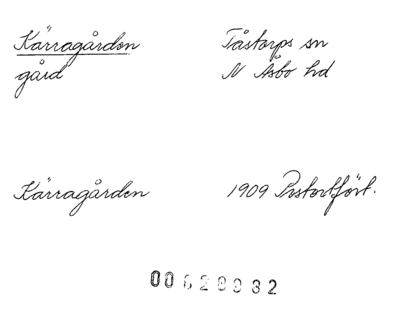 Kärragården
gård
Tåstarps sn
N Åsbo hd
Kärragården
1909 Postortfört.